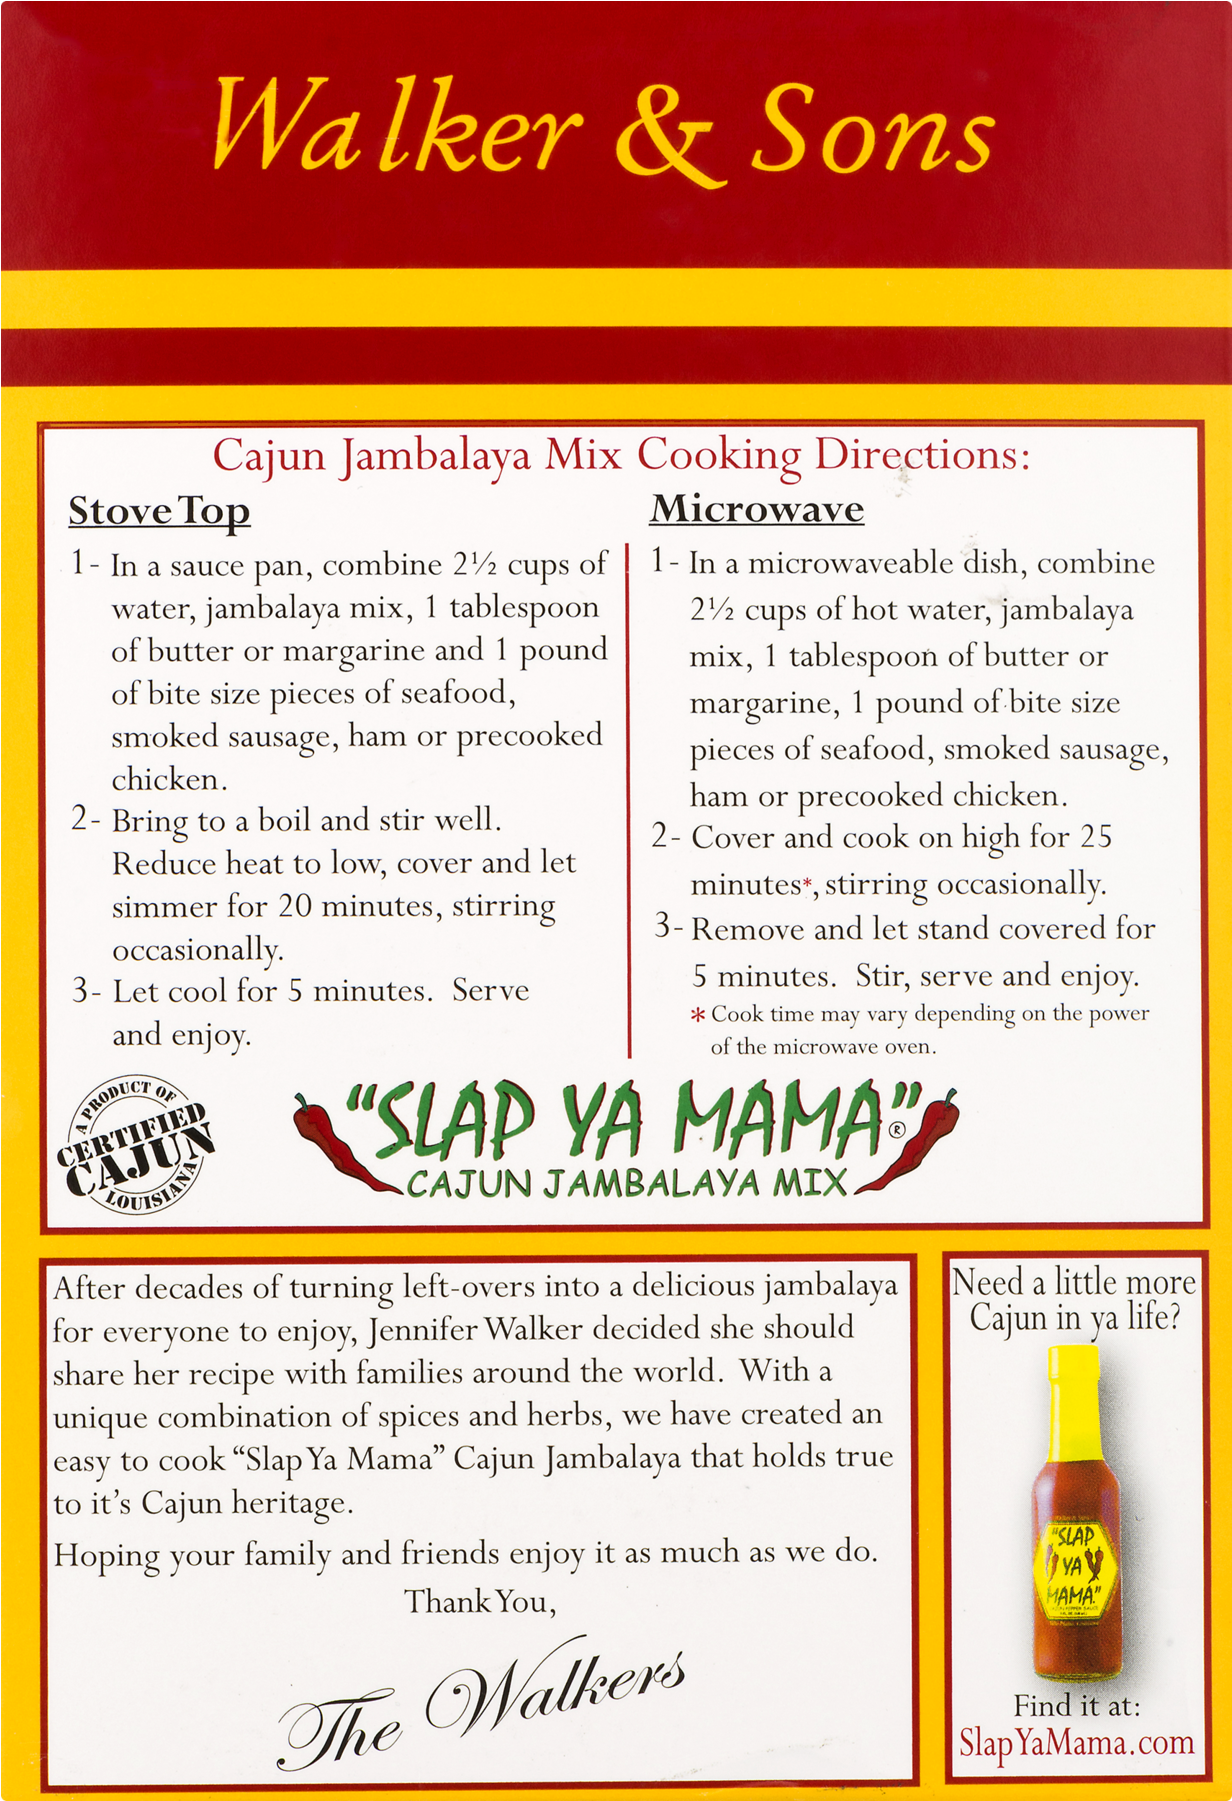 Walker & Sons
Cajun Jambalaya Mix Cooking Directions:
Stove Top
1- In a sauce pan, combine 2½ cups of
water, jambalaya mix, 1 tablespoon
of butter or margarine and 1 pound
of bite size pieces of seafood,
smoked sausage, ham or precooked
chicken.
2- Bring to a boil and stir well.
Reduce heat to low, cover and let
simmer for 20 minutes, stirring
occasionally.
3- Let cool for 5 minutes. Serve
and enjoy.
Microwave
1- In a microwaveable dish, combine
2½ cups of hot water, jambalaya
mix, 1 tablespoon of butter or
margarine, 1 pound of bite size
pieces of seafood, smoked sausage,
ham or precooked chicken.
2- Cover and cook on high for 25
minutes*, stirring occasionally.
3- Remove and let stand covered for
5 minutes. Stir, serve and enjoy.
* Cook time may vary depending on the power
of the microwave oven.
A PRODUCT OF
CERTIFIED
CAJUN
LOUISIANA
"SLAP YA MAMA"®
CAJUN JAMBALAYA MIX
After decades of turning left-overs into a delicious jambalaya
for everyone to enjoy, Jennifer Walker decided she should
share her recipe with families around the world. With a
unique combination of spices and herbs, we have created an
easy to cook “Slap Ya Mama” Cajun Jambalaya that holds true
to it’s Cajun heritage.
Hoping your family and friends enjoy it as much as we do.
Thank You,
The Walkers
Need a little more
Cajun in ya life?
"SLAP
YA
MAMA"
Find it at:
SlapYaMama.com